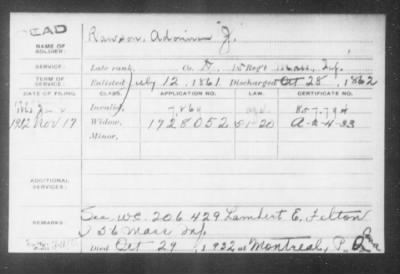 EAD
NAME OF SOLDIER: Rawson, J.
SERVICE: Late rank, Co. D, 15 Reg't Mass. Inf.
TERM OF SERVICE Enlisted July 12, 1861 Discharged Oct 28, 1862
DATE OF FILING. CLASS. APPLICATION NO. LAW. CERTIFICATE NO.
Invalid, 857.794
1932 Nov 17 Widow, 1728052 01-20 A-2-4-33
Minor,
ADDITIONAL SERVICES:
REMARKS: See WC. 206.429 Lambert E. Felton
36 Mass Inf.
Died Oct 29, 1932 at Montreal, P. Q.